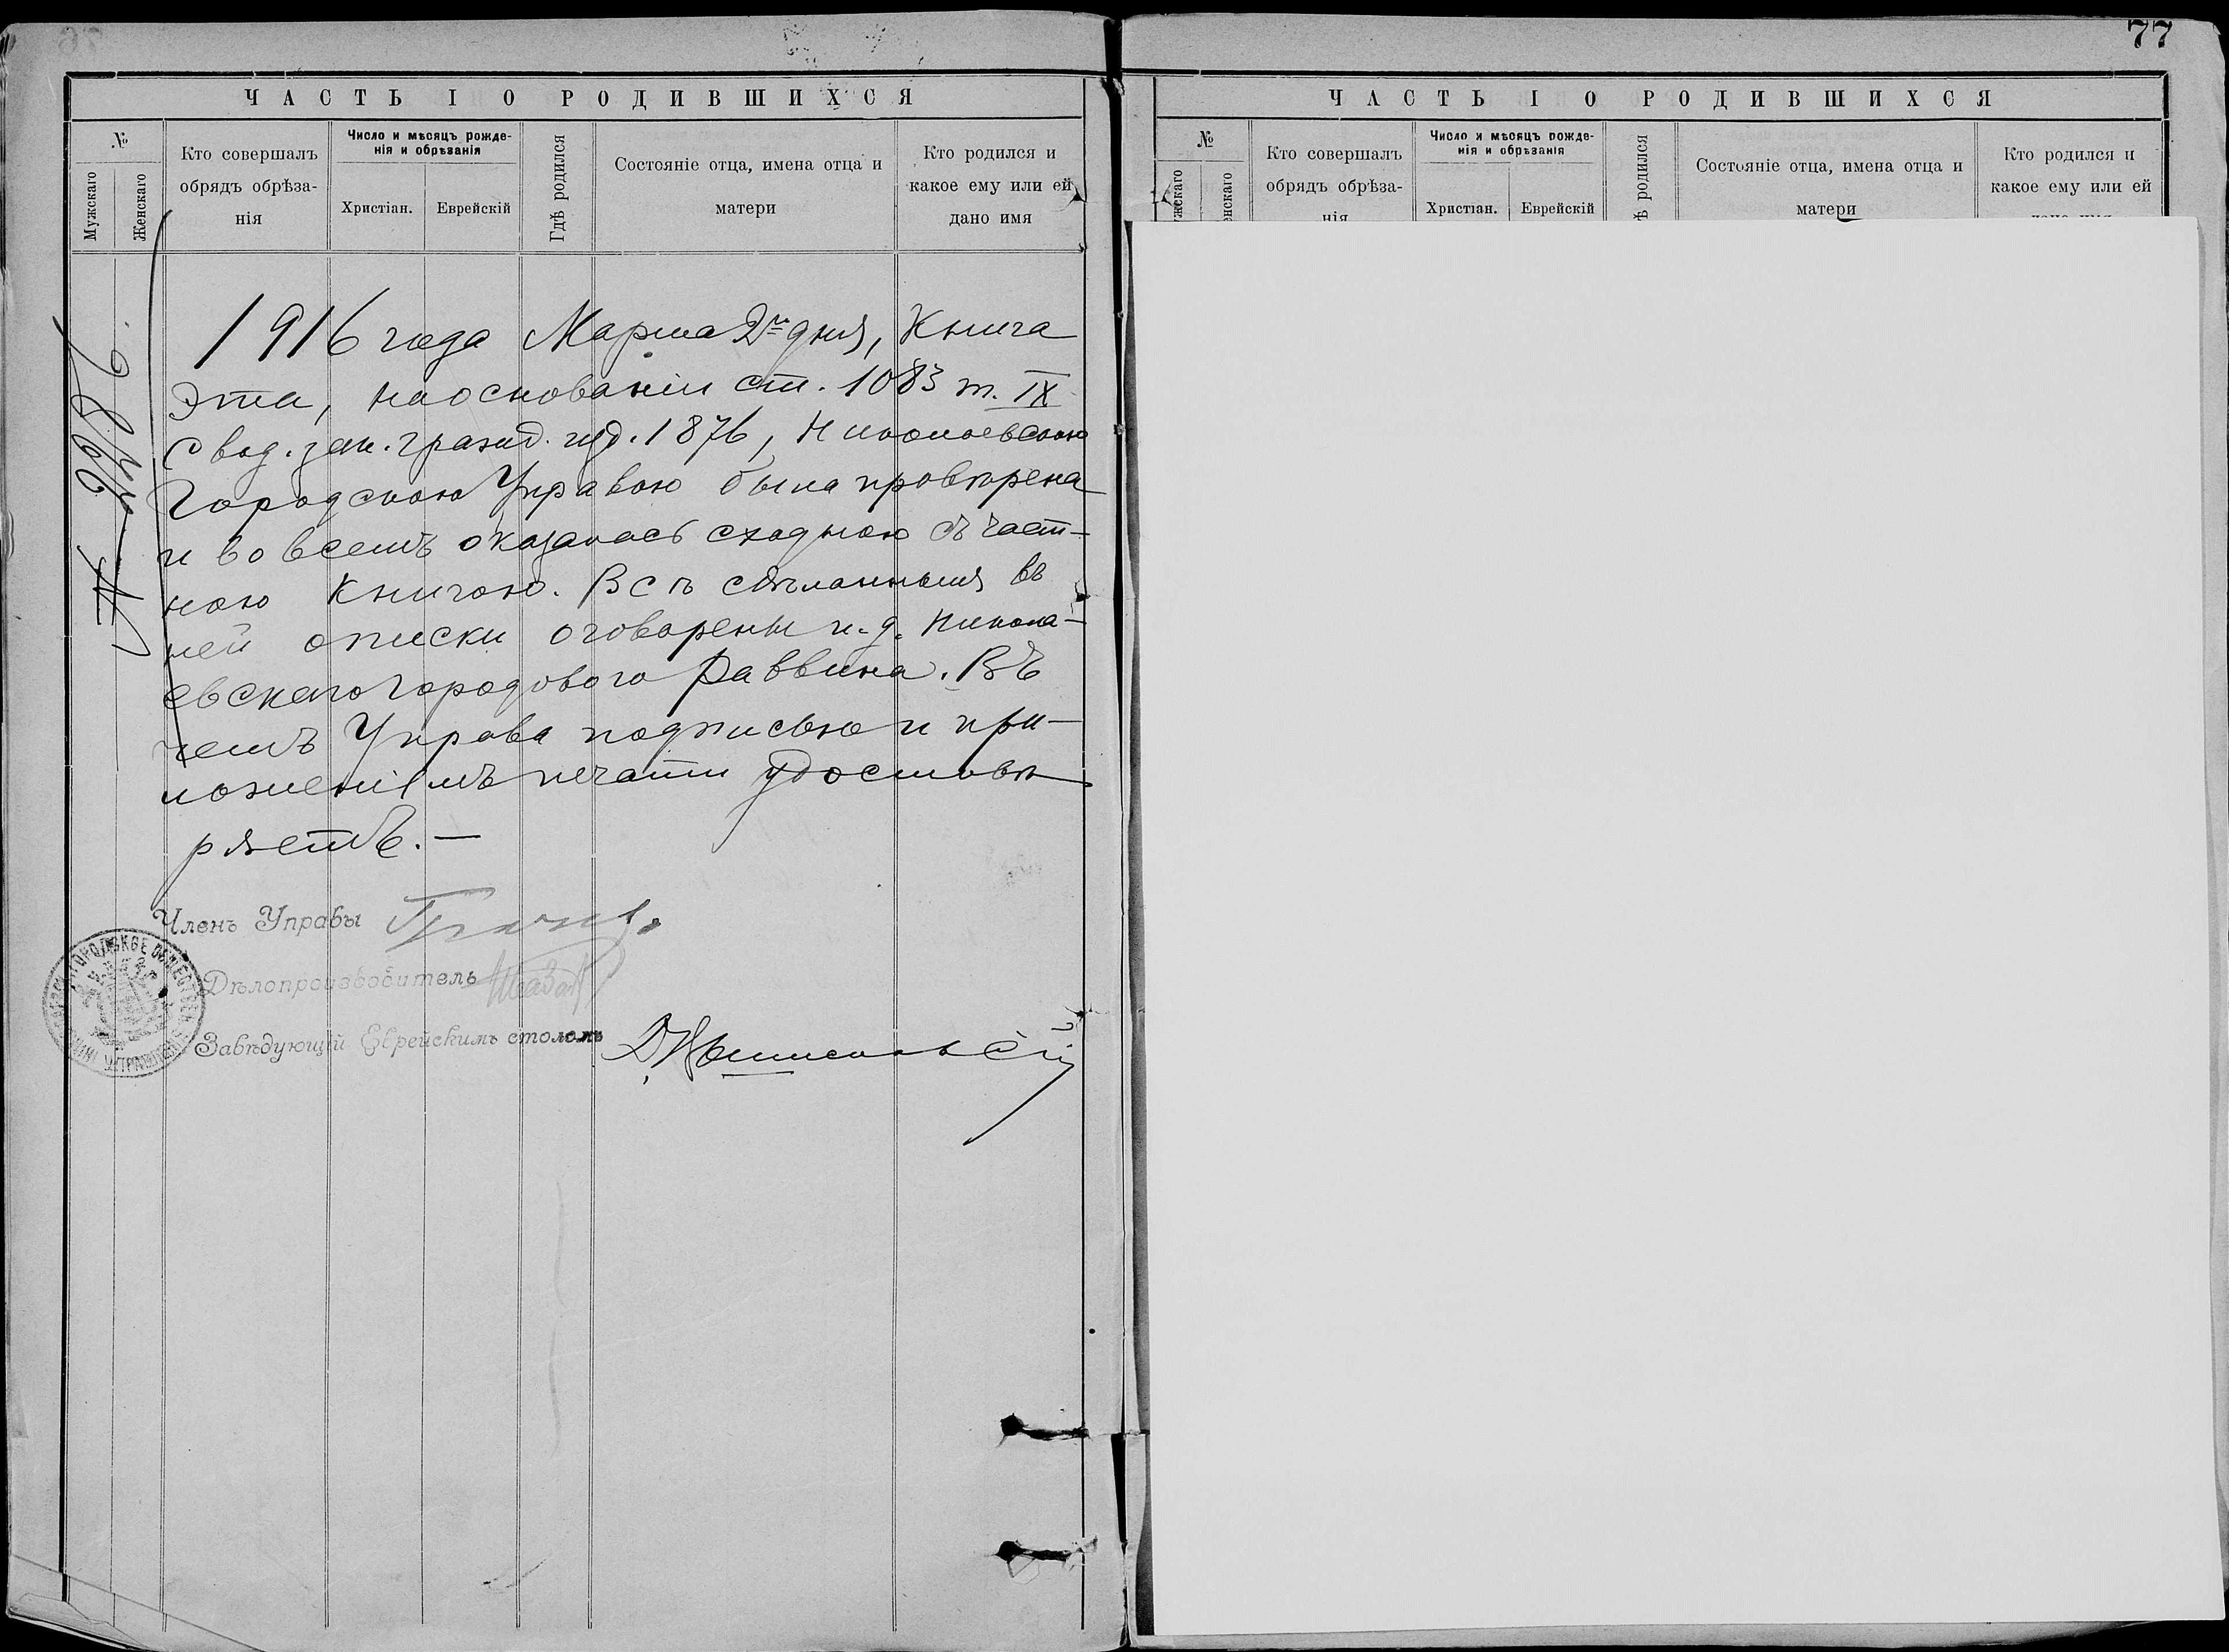 77
ЧАСТЬ I О РОДИВШИХСЯ
№
Мужскаго
Женскаго
Кто совершалъ
обрядъ обрѣза-
нія
Число и мѣсяцъ рожде-
нія и обрѣзанія
Христіан.
Еврейскій
Гдѣ родился
Состояніе отца, имена отца и
матери
Кто родился и
какое ему или ей
дано имя
1916 года Марта 2го дня, Книга
Эта, на основаніи ст. 1083 т. IX
Свод. зак. гражд. изд. 1876, Николаевскою
Городскою Управою была провѣрена
и во всемъ оказалась сходною съ част-
ною Книгою. Всѣ сдѣланныя въ
ней описки оговорены и. д. Никола-
евскаго городового Раввина. Въ
чемъ Управа подписью и при-
ложеніемъ печати удостовѣ
ряетъ. —
Членъ Управы
Дѣлопроизводитель
Завѣдующій Еврейскимъ столомъ
ЧАСТЬ I О РОДИВШИХСЯ
№
жскаго
нскаго
Кто совершалъ
обрядъ обрѣза-
нія
Число и мѣсяцъ рожде-
нія и обрѣзанія
Христіан.
Еврейскій
ѣ родился
Состояніе отца, имена отца и
матери
Кто родился и
какое ему или ей